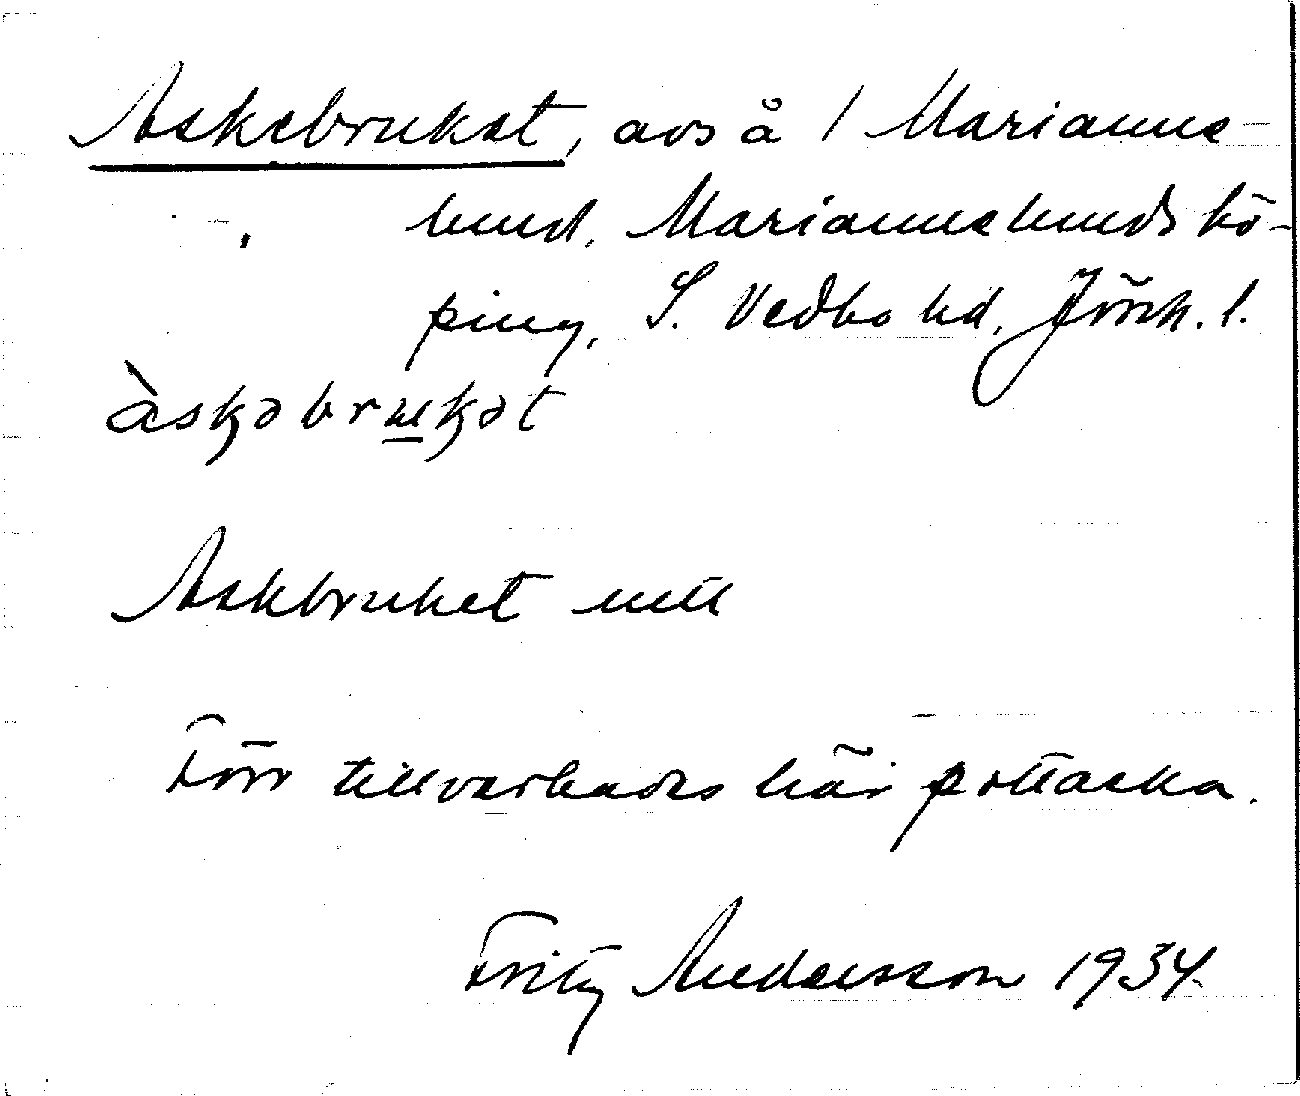 Askebruket, avs å 1 Marianne-
lund, Mariannelunds kö-
ping, S. Vedbo hd, Jönk. l.
àskəbrukət
Askbruket uttl
Förr tillverkades här pottaska.
Fritz Andersson 1934